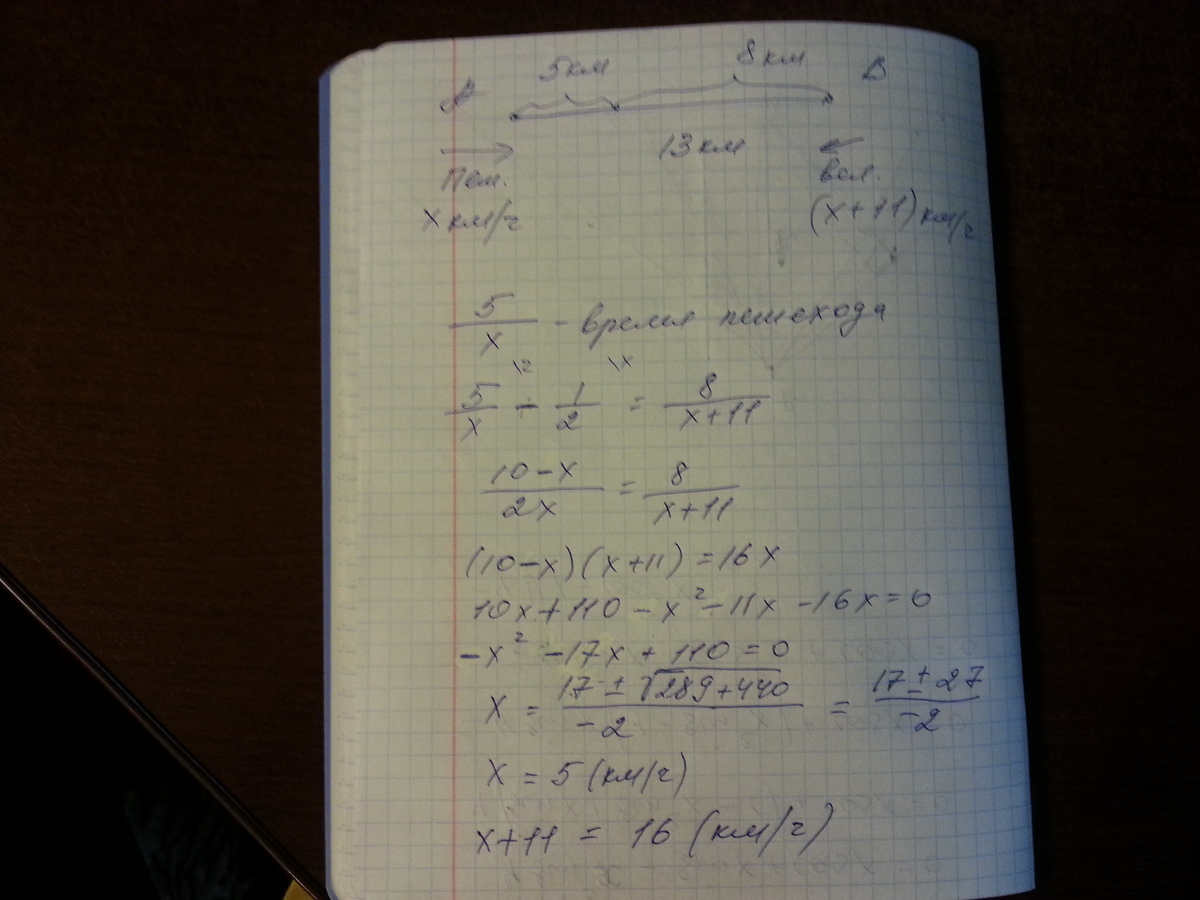 5км 8км
A B
13 км
Пеш. вел.
x км/ч (x+11) км/ч
5/x - время пешехода
\2 \x
5/x - 1/2 = 8/(x+11)
(10-x)/2x = 8/(x+11)
(10-x)(x+11) = 16x
10x+110-x²-11x-16x=0
-x²-17x+110=0
x = (17±√289+440)/-2 = (17±27)/-2
x = 5 (км/ч)
x+11 = 16 (км/ч)